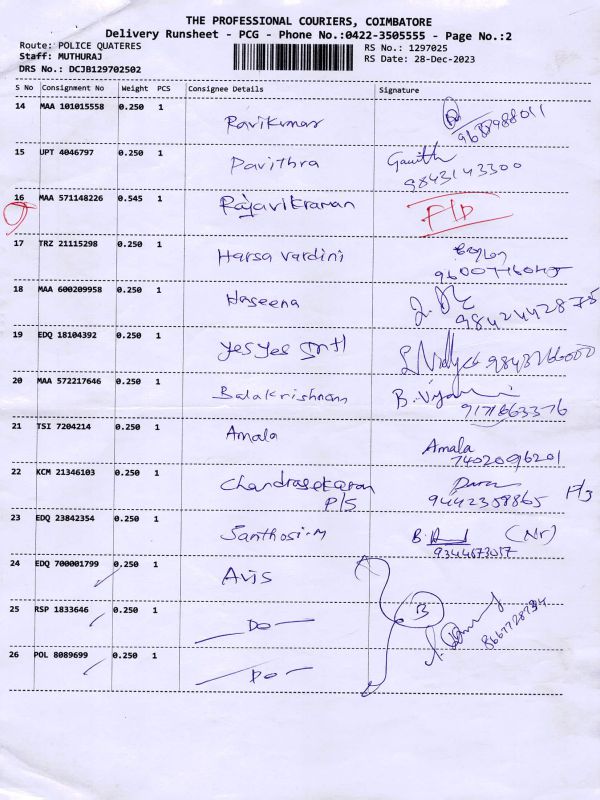 THE PROFESSIONAL COURIERS, COIMBATORE
Delivery Runsheet - PCG - Phone No.:0422-3505555 - Page No.:2
Route: POLICE QUATERES RS No.: 1297025
Staff: MUTHURAJ RS Date: 28-Dec-2023
DRS No.: DCJB129702502
S No Consignment No Weight PCS Consignee Details Signature
14 MAA 101015558 0.250 1 Ravikumar
15 UPT 4046797 0.250 1 Pavithra Gowtth 9843143300
16 MAA 571148226 0.545 1 Rajavikraman
17 TRZ 21115298 0.250 1 Harsa Vardini
18 MAA 600209958 0.250 1 Haseena 9842442875
19 EDQ 18104392 0.250 1 yes yes Intl
20 MAA 572217646 0.250 1 Balakrishnann 9171663376
21 TSI 7204214 0.250 1 Amala Amala
7402096201
22 KCM 21346103 0.250 1 Chandrasekaran
P/S 9442358865
23 EDQ 23842354 0.250 1 Santhosi-M (Nr)
24 EDQ 700001799 0.250 1 Avis
25 RSP 1833646 0.250 1 Do 3
26 POL 8089699 0.250 1 Do